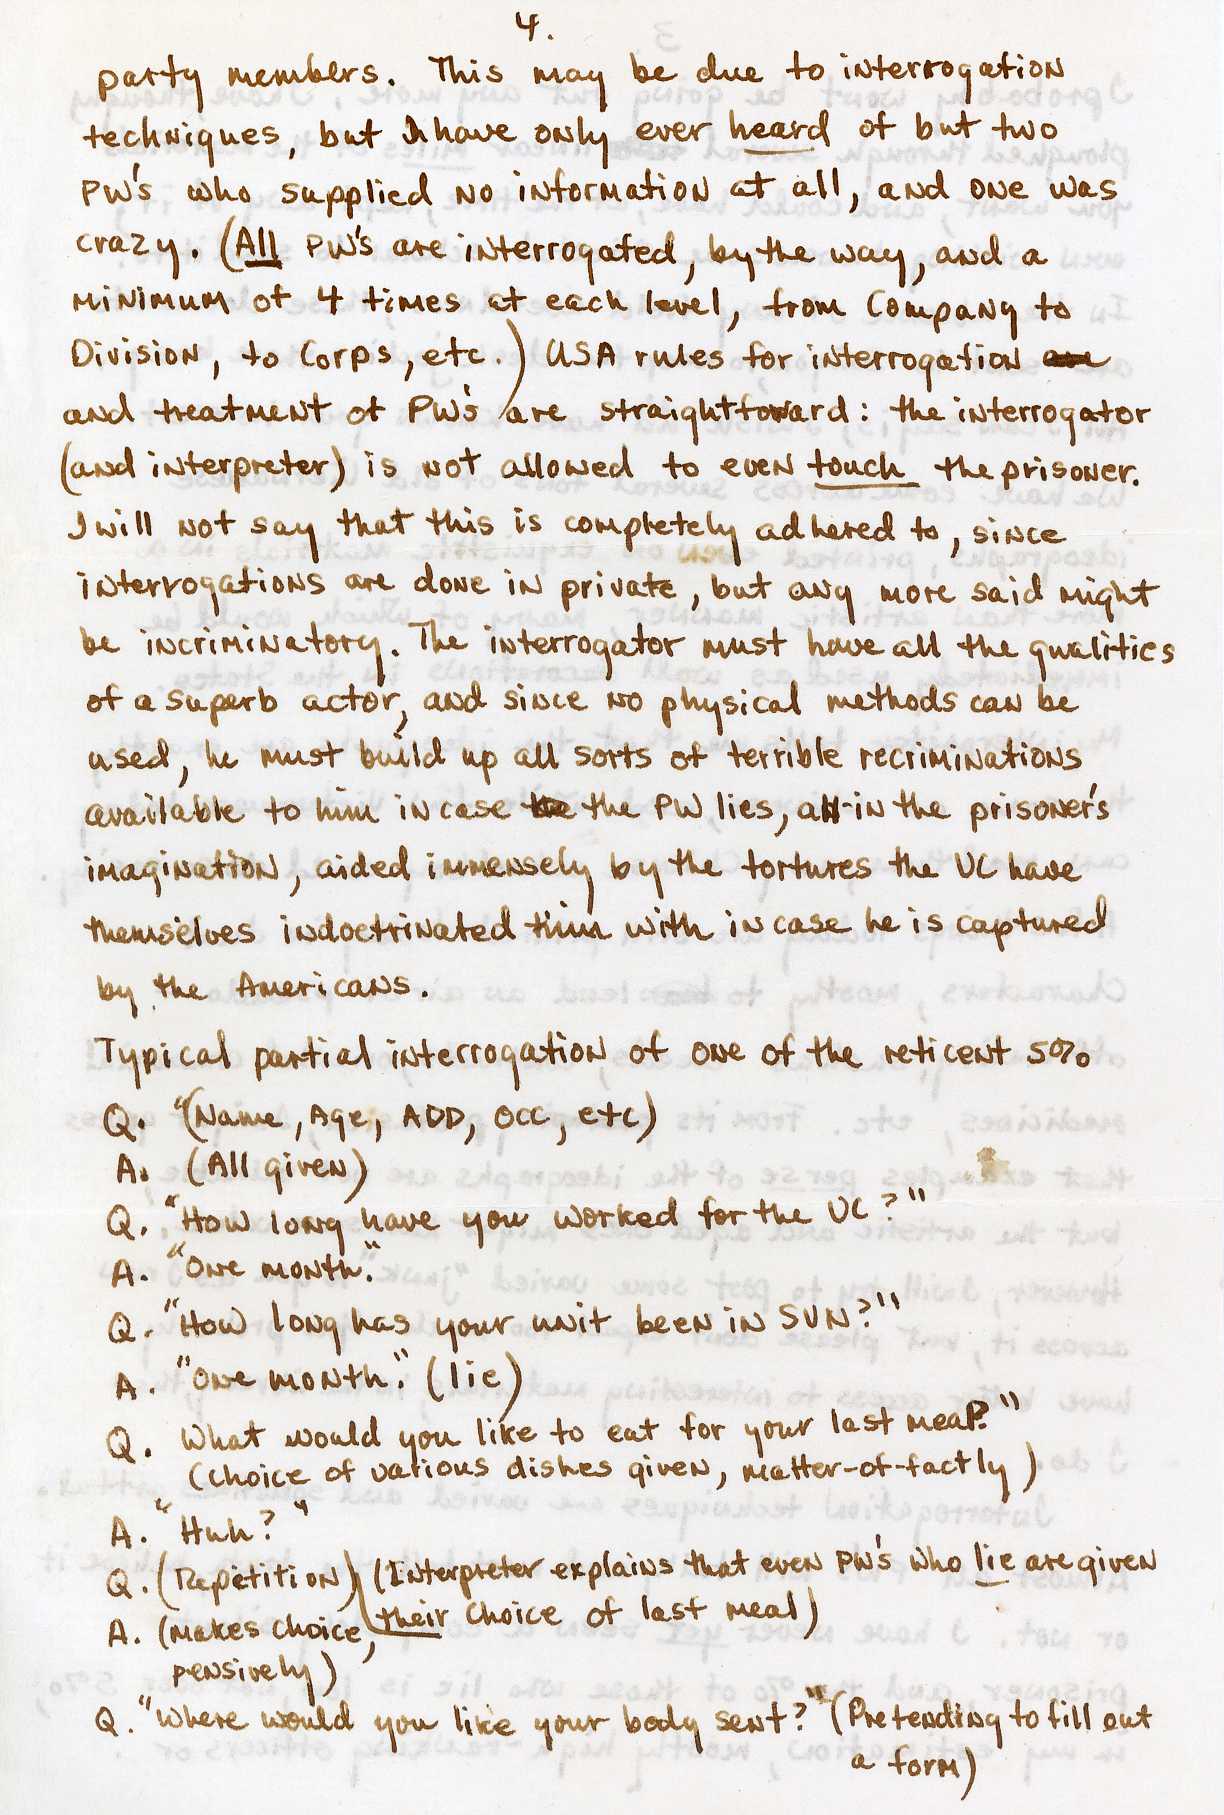 4.
party members. This may be due to interrogation
techniques, but I have only ever heard of but two
PW's who supplied no information at all, and one was
crazy. (All PW's are interrogated, by the way, and a
minimum of 4 times at each level, from Company to
Division, to Corps, etc.) USA rules for interrogation are
and treatment of PW's are straightforward: the interrogator
(and interpreter) is not allowed to even touch the prisoner.
I will not say that this is completely adhered to, since
interrogations are done in private, but any more said might
be incriminatory. The interrogator must have all the qualities
of a superb actor, and since no physical methods can be
used, he must build up all sorts of terrible recriminations
available to him in case the PW lies, all in the prisoner's
imagination, aided immensely by the tortures the VC have
themselves indoctrinated him with in case he is captured
by the Americans.
Typical partial interrogation of one of the reticent 5%
Q. "(Name, Age, ADD, OCC, etc)
A. (All given)
Q. "How long have you worked for the VC?"
A. "One month."
Q. "How long has your unit been in SVN?"
A. "One month." (lie)
Q. What would you like to eat for your last meal?"
(choice of various dishes given, matter-of-factly)
A. "Huh?"
Q. (Repetition) (Interpreter explains that even PW's who lie are given
their choice of last meal)
A. (makes choice,
pensively)
Q. "Where would you like your body sent?" (Pretending to fill out
a form)